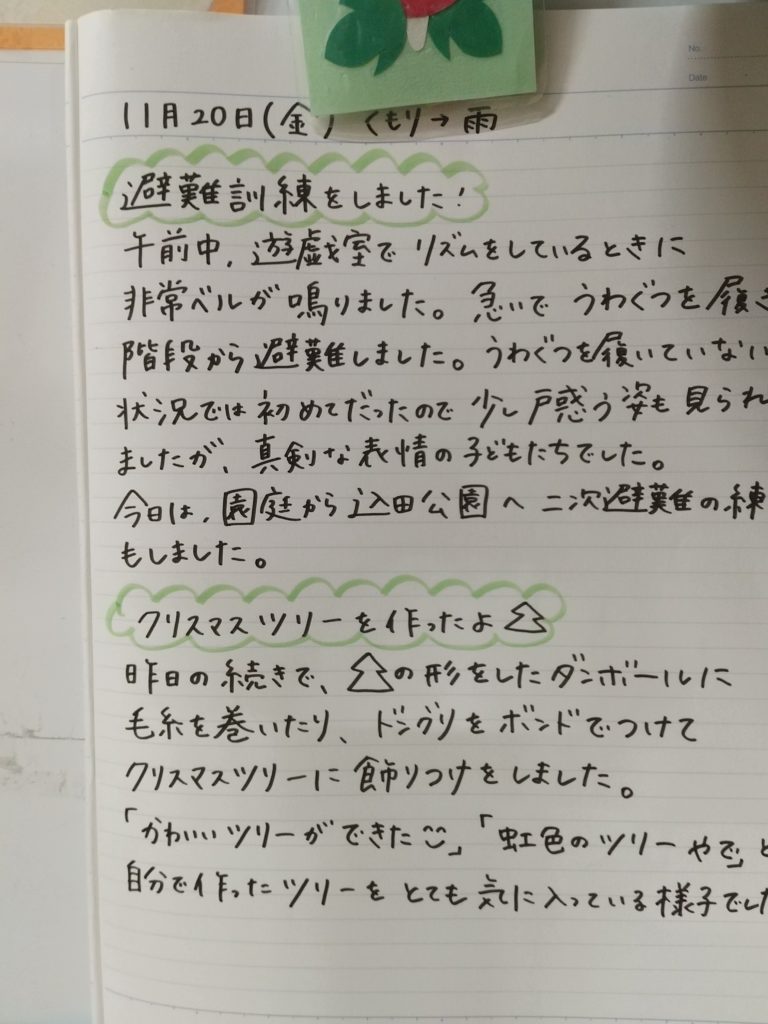 No.
Date
11月20日(金) くもり→雨
避難訓練をしました!
午前中、遊戯室で リズムをしているときに
非常ベルが 鳴りました。急いで うわぐつを 履き
階段から 避難しました。うわぐつを履いていない
状況では 初めてだったので 少し戸惑う姿も 見られ
ましたが、真剣な表情の子どもたちでした。
今日は、園庭から 込田公園へ 二次避難の練
もしました。
クリスマスツリーを作ったよ
昨日の続きで、の形をしたダンボールに
毛糸を巻いたり、ドングリを ボンドでつけて
クリスマスツリーに 飾りつけをしました。
「かわいいツリーができた」「虹色のツリーやで」と
自分で作ったツリーを とても気に入っている様子でした